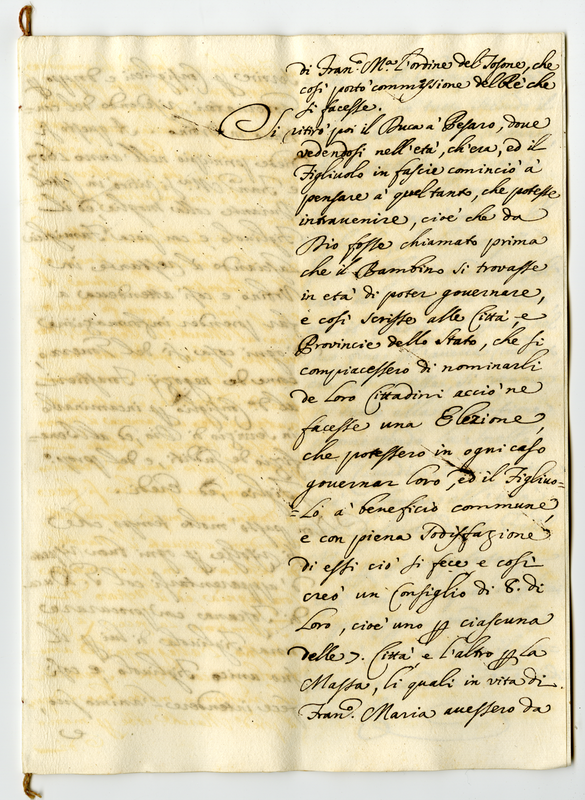 di Fran.º M.ª l'ordine del Tosone, che
così portò commissione del Rè che
si facesse.
Si ritirò poi il Duca à Pesaro, dove
vedendosi nell'età, ch'era, ed il
Figliuolo in fascie cominciò à
pensare à quel tanto, che potesse
intravenire, cioè che da
Dio fosse chiamato prima
che il Bambino si trovasse
in età di poter governare,
e così scrisse alle Città, e
Provincie dello Stato, che si
compiacessero di nominarli
de Loro Cittadini acciò ne
facesse una Elezione,
che potessero in ogni caso
governar loro, ed il Figliuo=
=Lo à beneficio commune,
e con piena Sodisfazione
di essi ciò si fece e così
creò un Consiglio di 8. di
Loro, cioè uno p ciascuna
delle 7. Città, e l'altro p La
Massa, li quali in vita di
Fran.º Maria avessero da